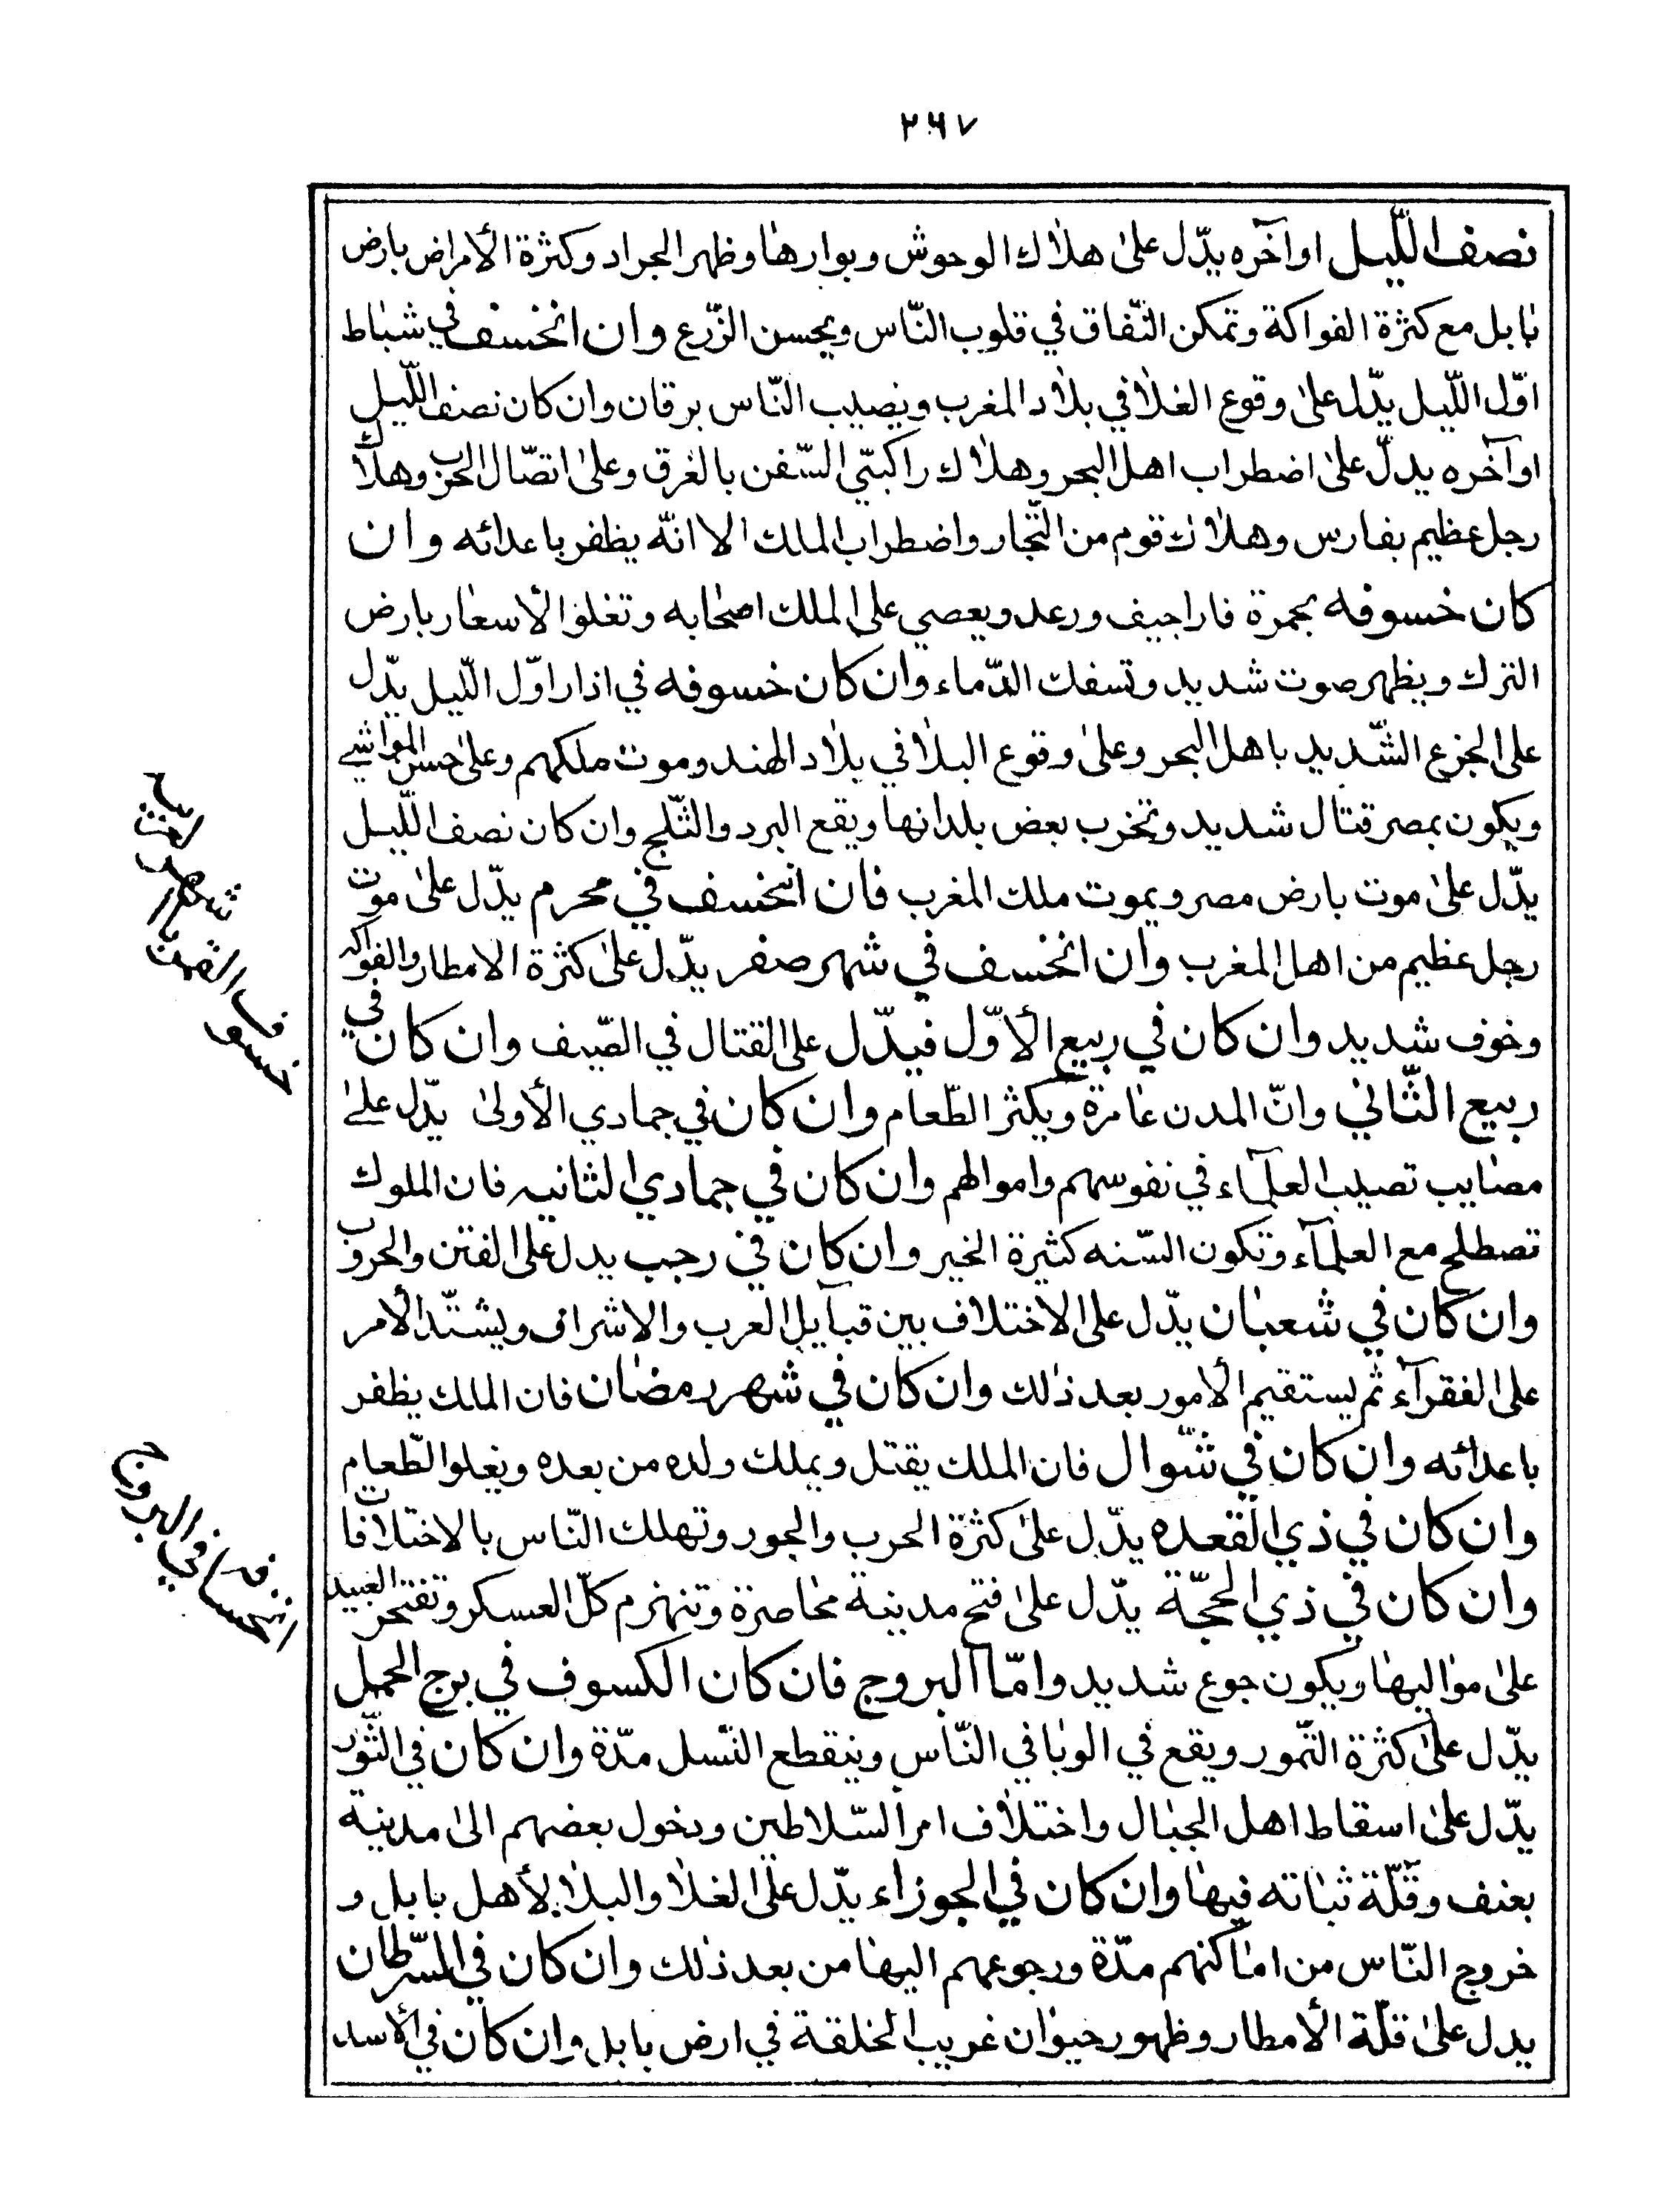 ٢٦٧
نصف اللّيل او آخره يدّل على هلاك الوحوش وبوارها وظهر الجراد وكثرة الأمراض بارض
بابل مع كثرة الفواكة وتمكن النّفاق في قلوب النّاس ويحسن الزّرع وان انخسف في شباط
اوّل اللّيل يدّل على وقوع الغلا في بلاد المغرب ويصيب النّاس يرقان وان كان نصف اللّيل
او آخره يدلّ على اضطراب اهل البحر وهلاك راكبتي السّفن بالغرق وعلى اتصّال الحرب وهلاك
رجل عظيم بفارس وهلاك قوم من التّجار واضطراب الملك الا انّه يظفر باعدائه وان
كان خسوفه بجمرة فاراجيف ورعد ويعصي على الملك اصحابه وتغلوا الأسعار بارض
الترك ويظهر صوت شديد وتسفك الدّماء وان كان خسوفه في اذار اوّل اللّيل يدّل
على الجزع الشّديد باهل البحر وعلى وقوع البلا في بلاد الهند وموت ملكهم وعلى حسن المواشي
ويكون بمصر قتال شديد وتخرب بعض بلدانها ويقع البرد والثّلج وان كان نصف اللّيل
يدّل على موت بارض مصر ويموت ملك المغرب فان انخسف في محرم يدّل على موت
رجل عظيم من اهل المغرب وان انخسف في شهر صفر يدّل على كثرة الامطار والفواكه
وخوف شديد وان كان في ربيع الأوّل فيدّل على القتال في الصّيف وان كان في
ربيع الثّاني وانّ المدن عامرة ويكثر الطّعام وان كان في جمادي الأولى يدّل على
مصايب تصيب العلمآء في نفوسهم واموالهم وان كان في جمادي الثانيه فان الملوك
تصطلح مع العلمآء وتكون السّنه كثيرة الخير وان كان في رجب يدل على الفتن والحروب
وان كان في شعبان يدّل على الاختلاف بين قبآيل العرب والاشراف ويشتدّ الأمر
على الفقرآء ثم يستقيم الأمور بعد ذلك وان كان في شهر رمضان فان الملك يظفر
باعدائه وان كان في شوّال فان الملك يقتل ويملك ولده من بعده ويغلوا الطّعام
وان كان في ذي القعده يدّل على كثرة الحرب والجور وتهلك النّاس بالاختلافات
وان كان في ذي الحجّة يدّل على فتح مدينة محاصرة وتنهزم كلّ العسكر وتفتخر العبيد
على مواليها ويكون جوع شديد وامّا البروج فان كان الكسوف في برج الحمل
يدّل على كثرة التّمور ويقع في الوبا في النّاس وينقطع النّسل مدّة وان كان في الثّور
يدّل على اسقاط اهل الجبال واختلاف امر السّلاطين ودخول بعضهم الى مدينة
بعنف وقلّة ثباته فيها وان كان في الجوزاء يدّل على الغلا والبلا لأهل بابل و
خروج النّاس من اماكنهم مدّة ورجوعهم اليها من بعد ذلك وان كان في السّرطان
يدل على قلّة الأمطار وظهور حيوان غريب الخلقة في ارض بابل وان كان في الأسد
خسوف القمر
انخسافه في البروج